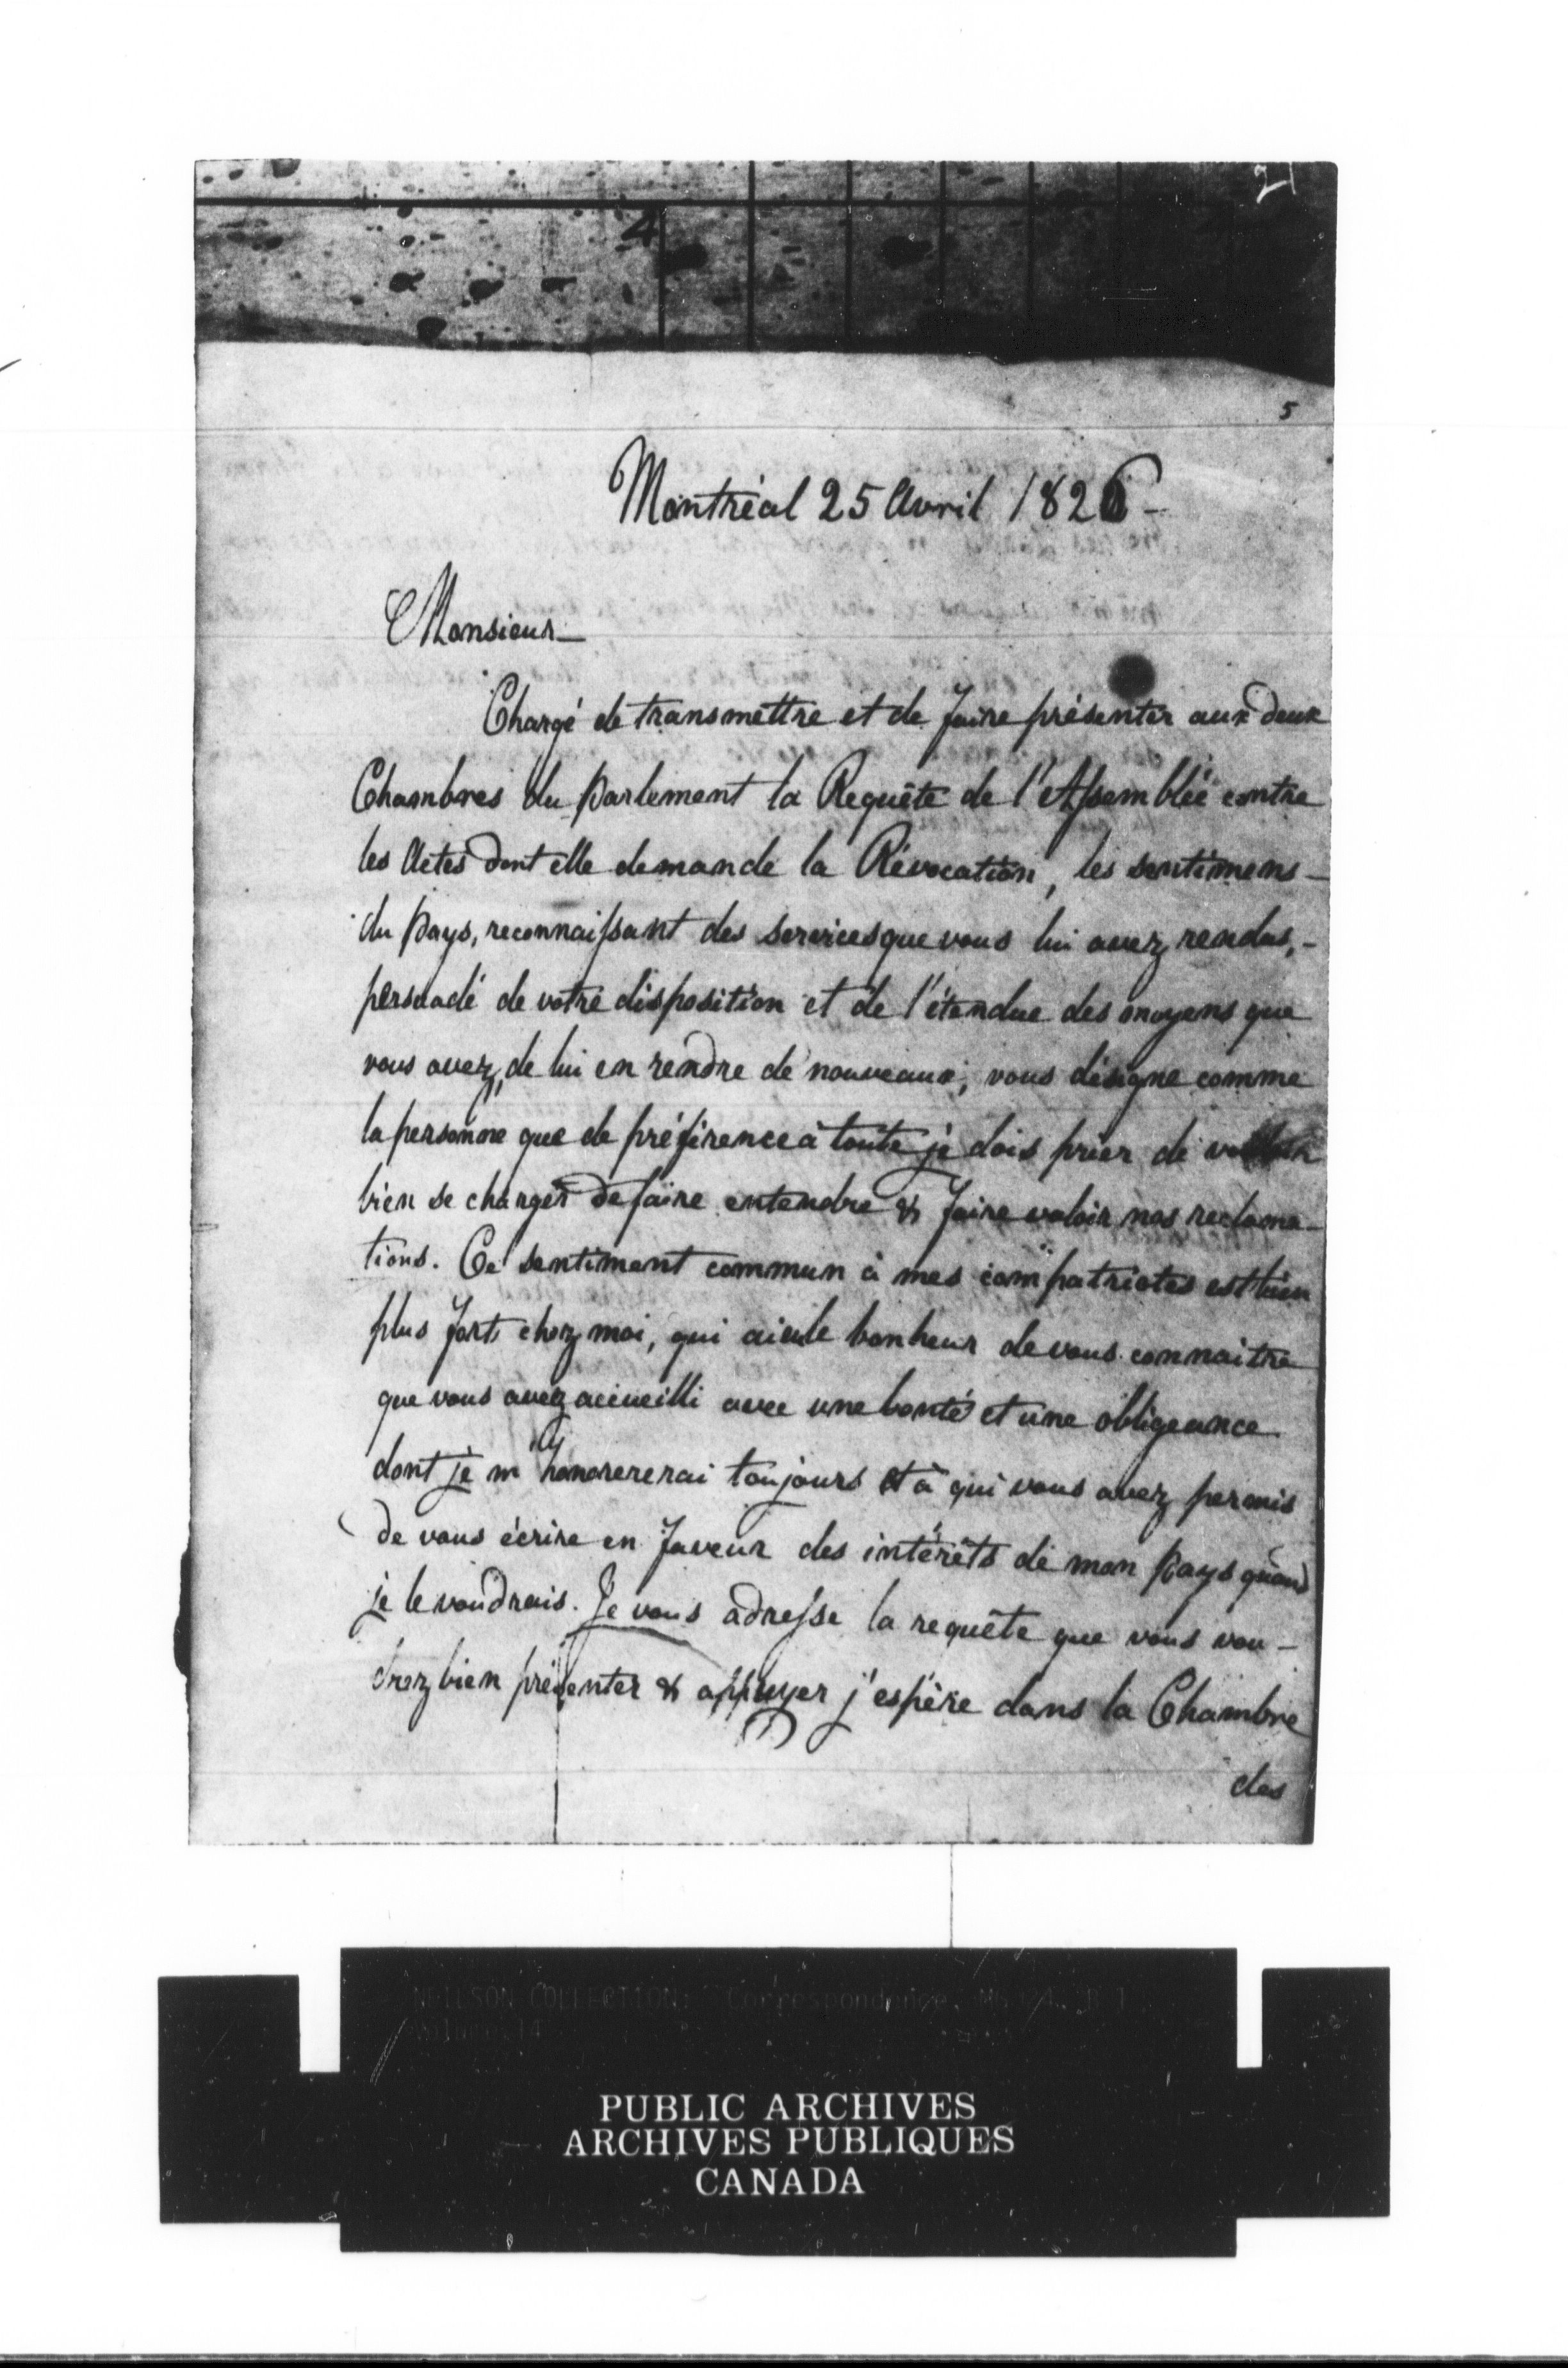 5
Montréal 25 Avril 1826 -
Monsieur -
Chargé de transmettre et de faire présenter aux deux
Chambres du Parlement la Requête de l'Assemblée contre
les Actes dont elle demande la Révocation, les sentimens -
du Pays, reconnaissant des services que vous lui avez rendus, -
persuadé de votre disposition et de l'étendue des moyens que
vous avez, de lui en rendre de nouveaux, vous désigne comme
la personne que de préférence à toute je dois prier de
bien se charger de faire entendre & faire valoir nos reclama-
tions. Ce sentiment commun à mes compatriotes est bien
plus fort chez moi, qui ai eu le bonheur de vous connaitre
que vous avez accueilli avec une bonté et une obligeance
dont je m'honorererai toujours et à qui vous avez permis
de vous écrire en faveur des intérêts de mon Pays quand
je le voudrais. Je vous adresse la requête que vous vou-
drez bien présenter & appuyer j'espère dans la Chambre
des
NEILSON COLLECTION: Correspondence, MG 24, B 1
Volume 14
PUBLIC ARCHIVES
ARCHIVES PUBLIQUES
CANADA